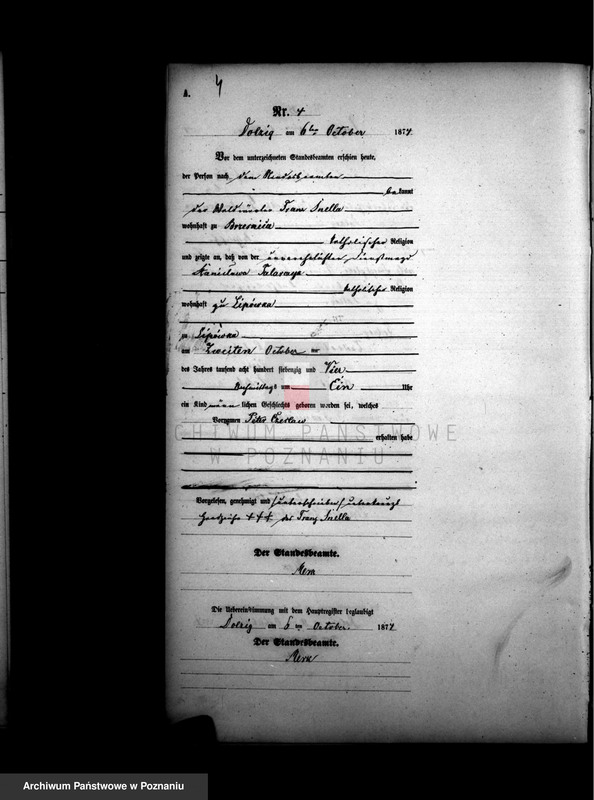 A. 4
Nr. 4
Dolzig am 6ten October 1874
Vor dem unterzeichneten Standesbeamten erschien heute,
der Person nach dem Standesbeamten
bekannt
der Franz Snella
wohnhaft zu Brzesnica
katholischer Religion
und zeigte an, daß von der unverehelichten Dienstmagd
Stanislawa
katholischer Religion
wohnhaft zu Lipowka
zu Lipowka
am Zweiten October
des Jahres tausend acht hundert siebenzig und Vier
Nachmittags um Ein Uhr
ein Kind männlichen Geschlechts geboren worden sei, welches
Vornamen
erhalten habe
Vorgelesen, genehmigt und
Handzeichen +++ des Franz Snella
Der Standesbeamte.
Die Uebereinstimmung mit dem Hauptregister beglaubigt
Dolzig am 6ten October 1874
Der Standesbeamte.
ARCHIWUM PAŃSTWOWE
W POZNANIU
Archiwum Państwowe w Poznaniu